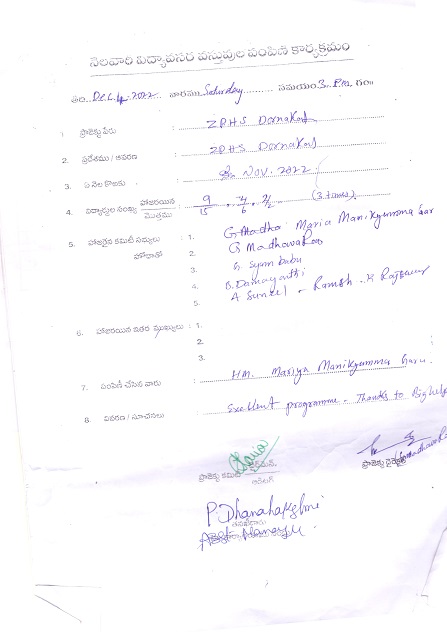 నెలవారి విద్యావసర వస్తువుల పంపిణీ కార్యక్రమం
తేది. Dec. 4. 2022 వారము Saturday సమయం 3. P.m గం॥
1. ప్రాజెక్టు పేరు : ZPHS Dornakal
2. ప్రదేశము / ఆవరణ : ZPHS Dornakal
3. ఏ నెల కొరకు : Nov. 2022
4. విద్యార్థుల సంఖ్య హాజరయిన / మొత్తము : 9/15 . 4/6 . 2/2 (3 times)
5. హాజరైన కమిటీ సభ్యులు : 1. Maria Manikyamma Gar
హోదాతో 2. G Madhava Rao
3. G Syam babu
4. B. Damayanthi
5. A Suneel - Ramesh - K Rajkumar
6. హాజరయిన ఇతర ముఖ్యులు : 1.
2.
3.
7. పంపిణీ చేసిన వారు : HM. Mariya Manikyamma Garu.
8. వివరణ / సూచనలు : Excellent programme - Thanks to Bighelp
ప్రాజెక్టు కమిటీ ఛైర్మన్,
ఆడిటర్
ప్రాజెక్టు డైరెక్టర్
P. Dhanalakshmi